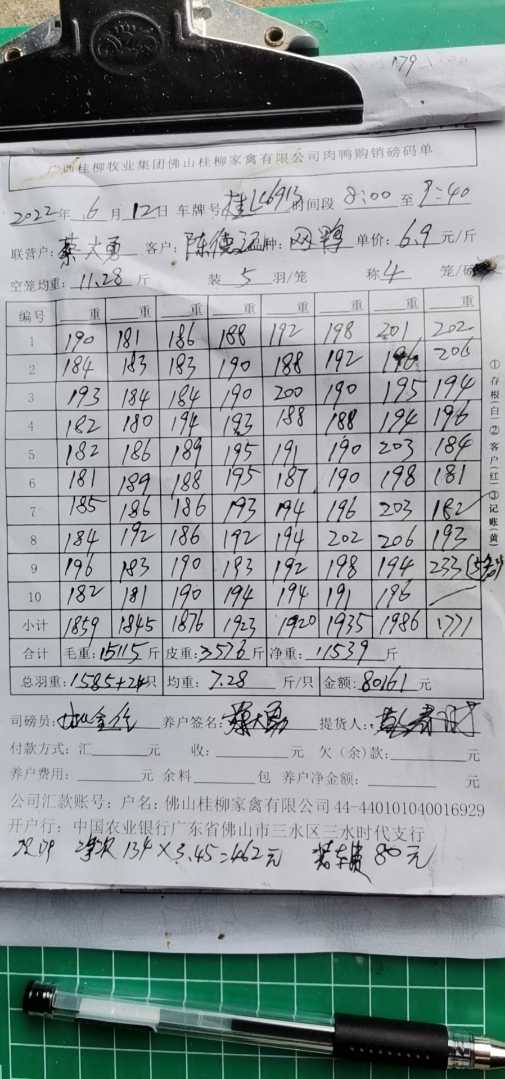 179
广西桂柳牧业集团佛山桂柳家禽有限公司肉鸭购销磅码单
2022年 6月 12日 车牌号 桂L6913 时间段 8:00 至 9:40
联营户: 蔡大勇 客户: 陈德 品种: 网鸭 单价: 6.9 元/斤
空笼均重: 11.28 斤 装 5 羽/笼 称 4 笼/磅
编号 重 重 重 重 重 重 重 重
1 190 181 186 188 192 198 201 202
2 184 183 183 190 188 192 196 206
3 193 184 184 190 200 190 195 194
4 182 180 194 193 188 188 194 196
5 182 186 189 195 191 190 203 184
6 181 189 188 195 187 190 198 181
7 185 186 186 193 194 196 203 182
8 184 192 186 192 194 202 206 193
9 196 183 190 183 192 198 194 233 (5笼)
10 182 181 190 194 194 191 196
小计 1859 1845 1876 1923 1920 1935 1986 1771
合计 毛重: 15115 斤 皮重: 3576 斤 净重: 11539 斤
总羽重: 1585+24 只 均重: 7.28 斤/只 金额: 80161 元
司磅员: 养户签名: 蔡大勇 提货人:
付款方式: 汇 元 收: 元 欠(余)款: 元
养户费用: 元 余料 包 养户净金额: 元
公司汇款账号: 户名: 佛山桂柳家禽有限公司 44-440101040016929
开户行: 中国农业银行广东省佛山市三水区三水时代支行
134×3.45=462元 装车费 80元
①存根(白)②客户(红)③记账(黄)